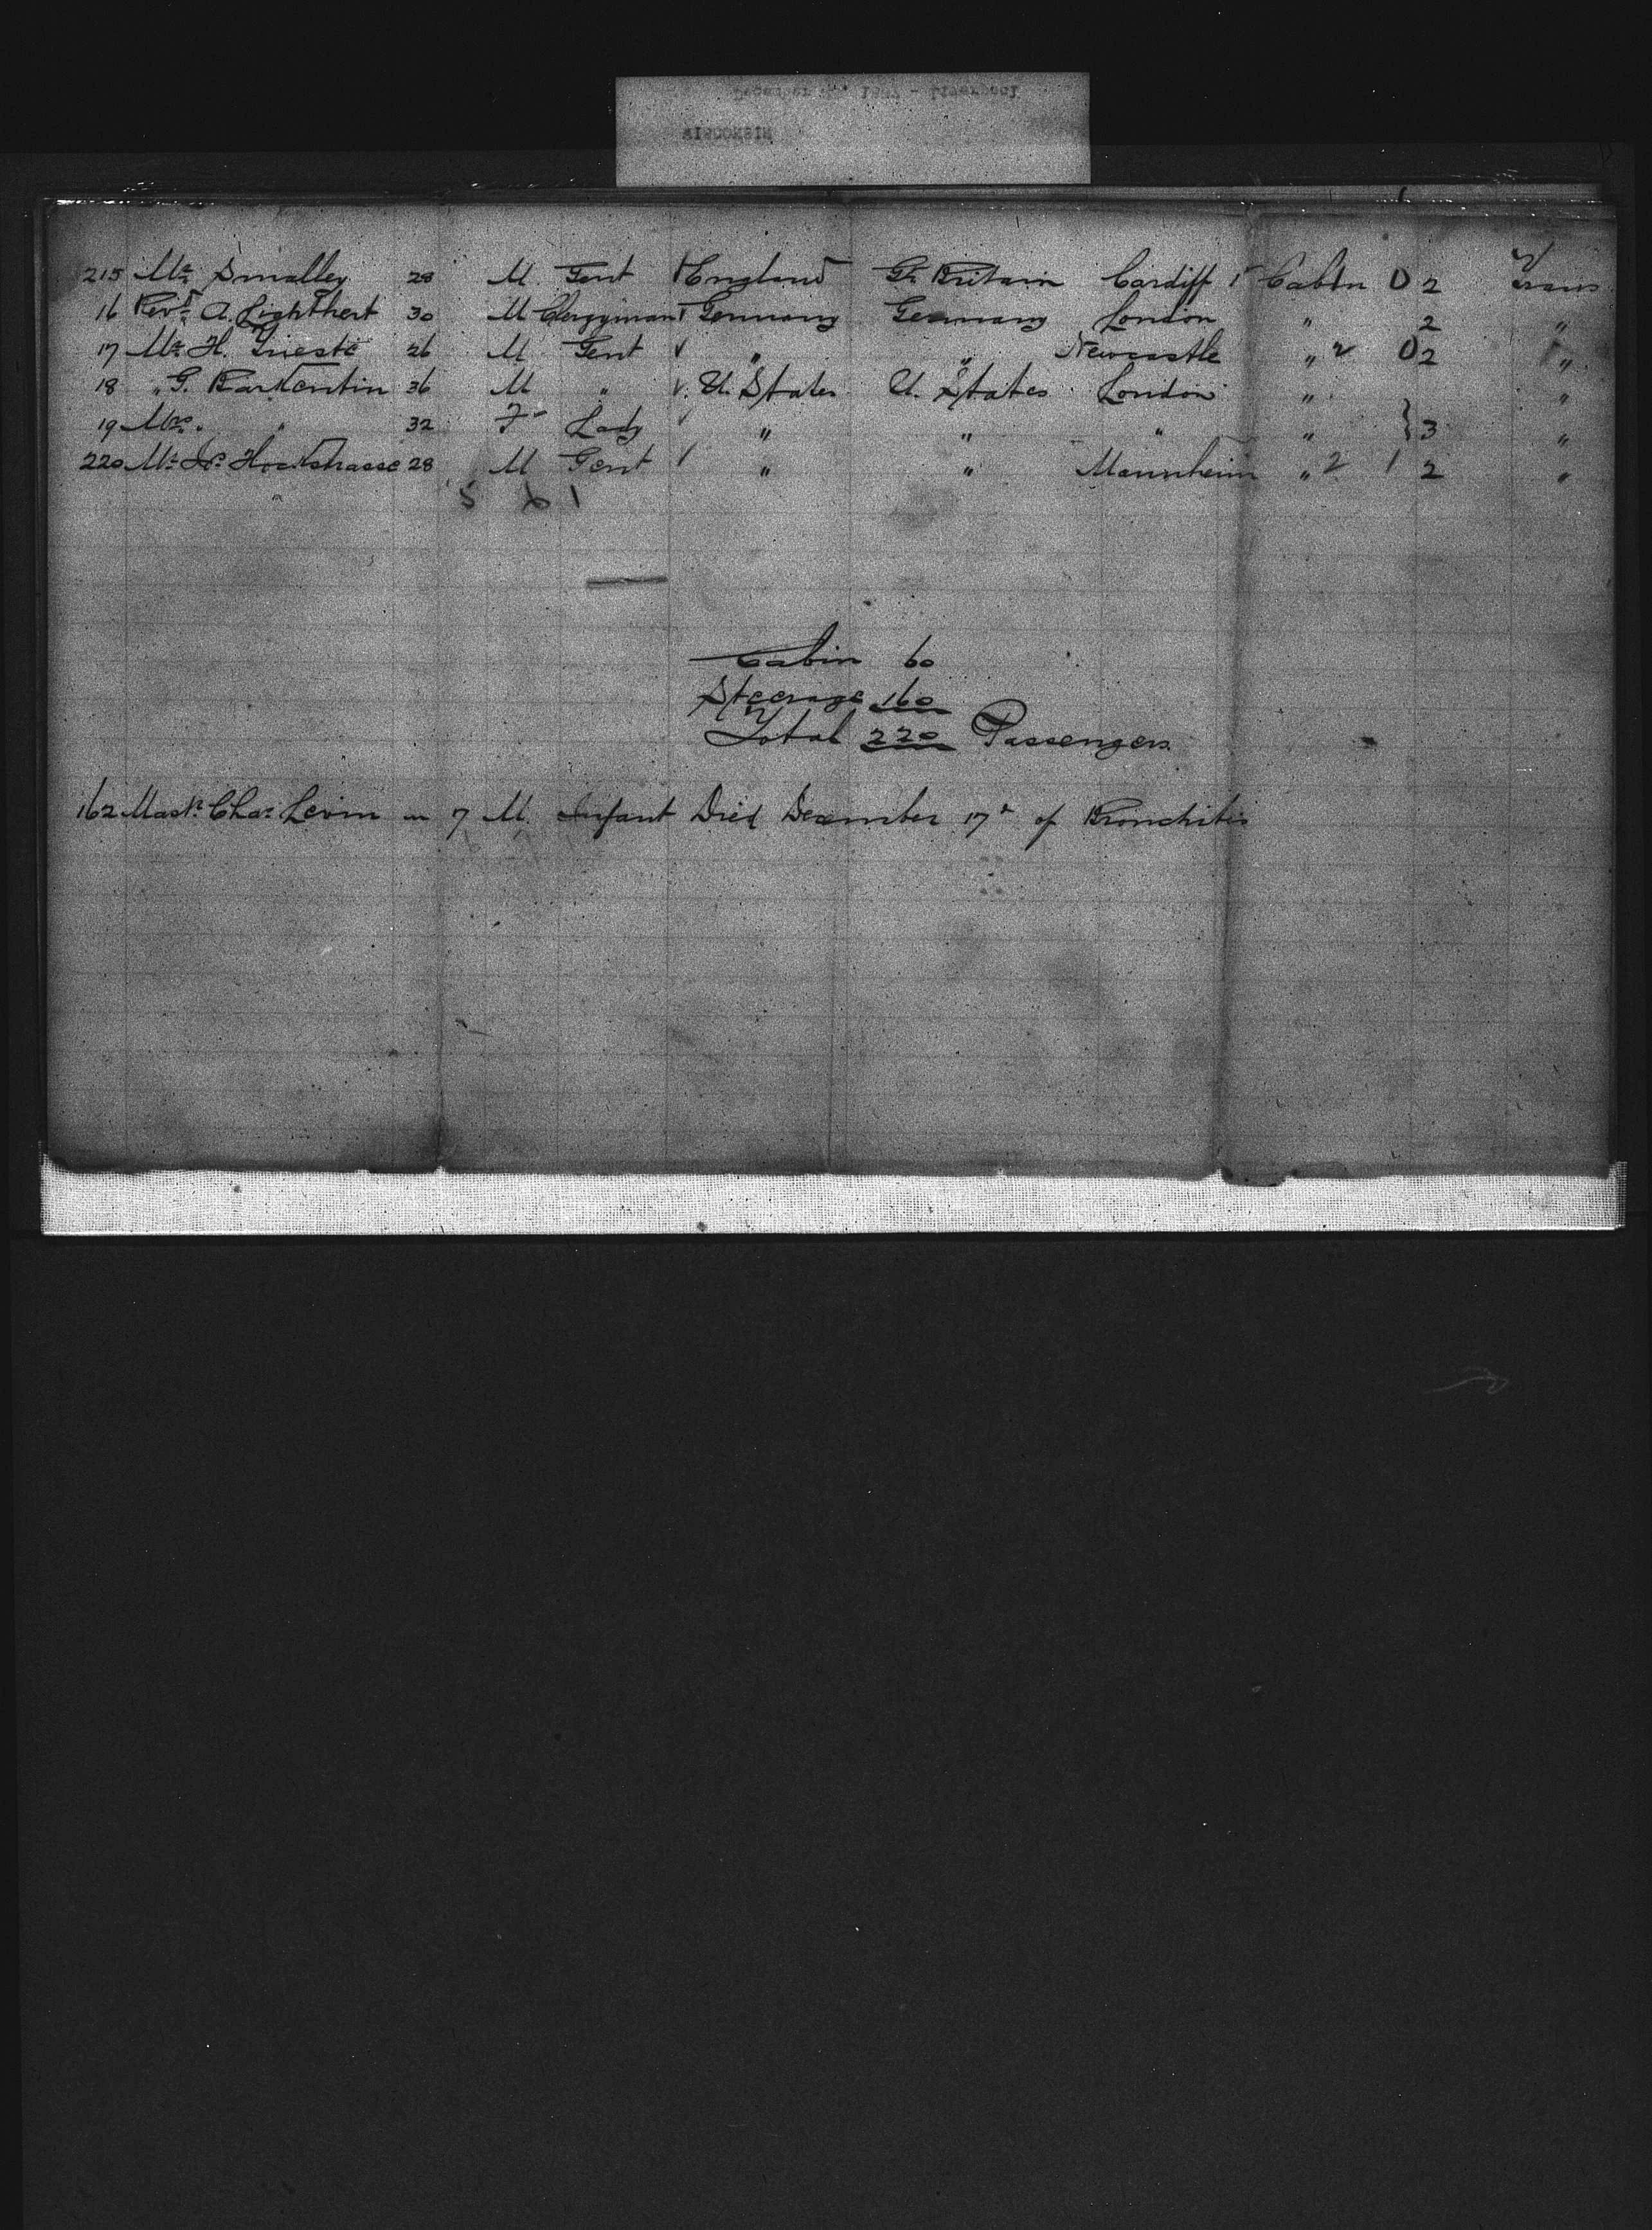 WISCONSIN
215 Mr. Smalley 28 M. Gent England Gt. Britain Cardiff 1 Cabin 0 2 Trans
16 Revd. A. Lighthert 30 M Clergyman Germany Germany London " 2 "
17 Mr. H. Grieste 26 M Gent ✓ " " Newcastle " 2 0 2 "
18 " G. 36 M " ✓ U. States U. States London " "
19 Mrs. " 32 F Lady ✓ " " " " } 3 "
220 Mr. 28 M Gent ✓ " " Mannheim " 2 1 2 "
5 6 1
Cabin 60
Steerage 160
Total 220 Passengers
162 Mastr. Chas. Levin 7 M. Infant Died December 17th of Bronchitis